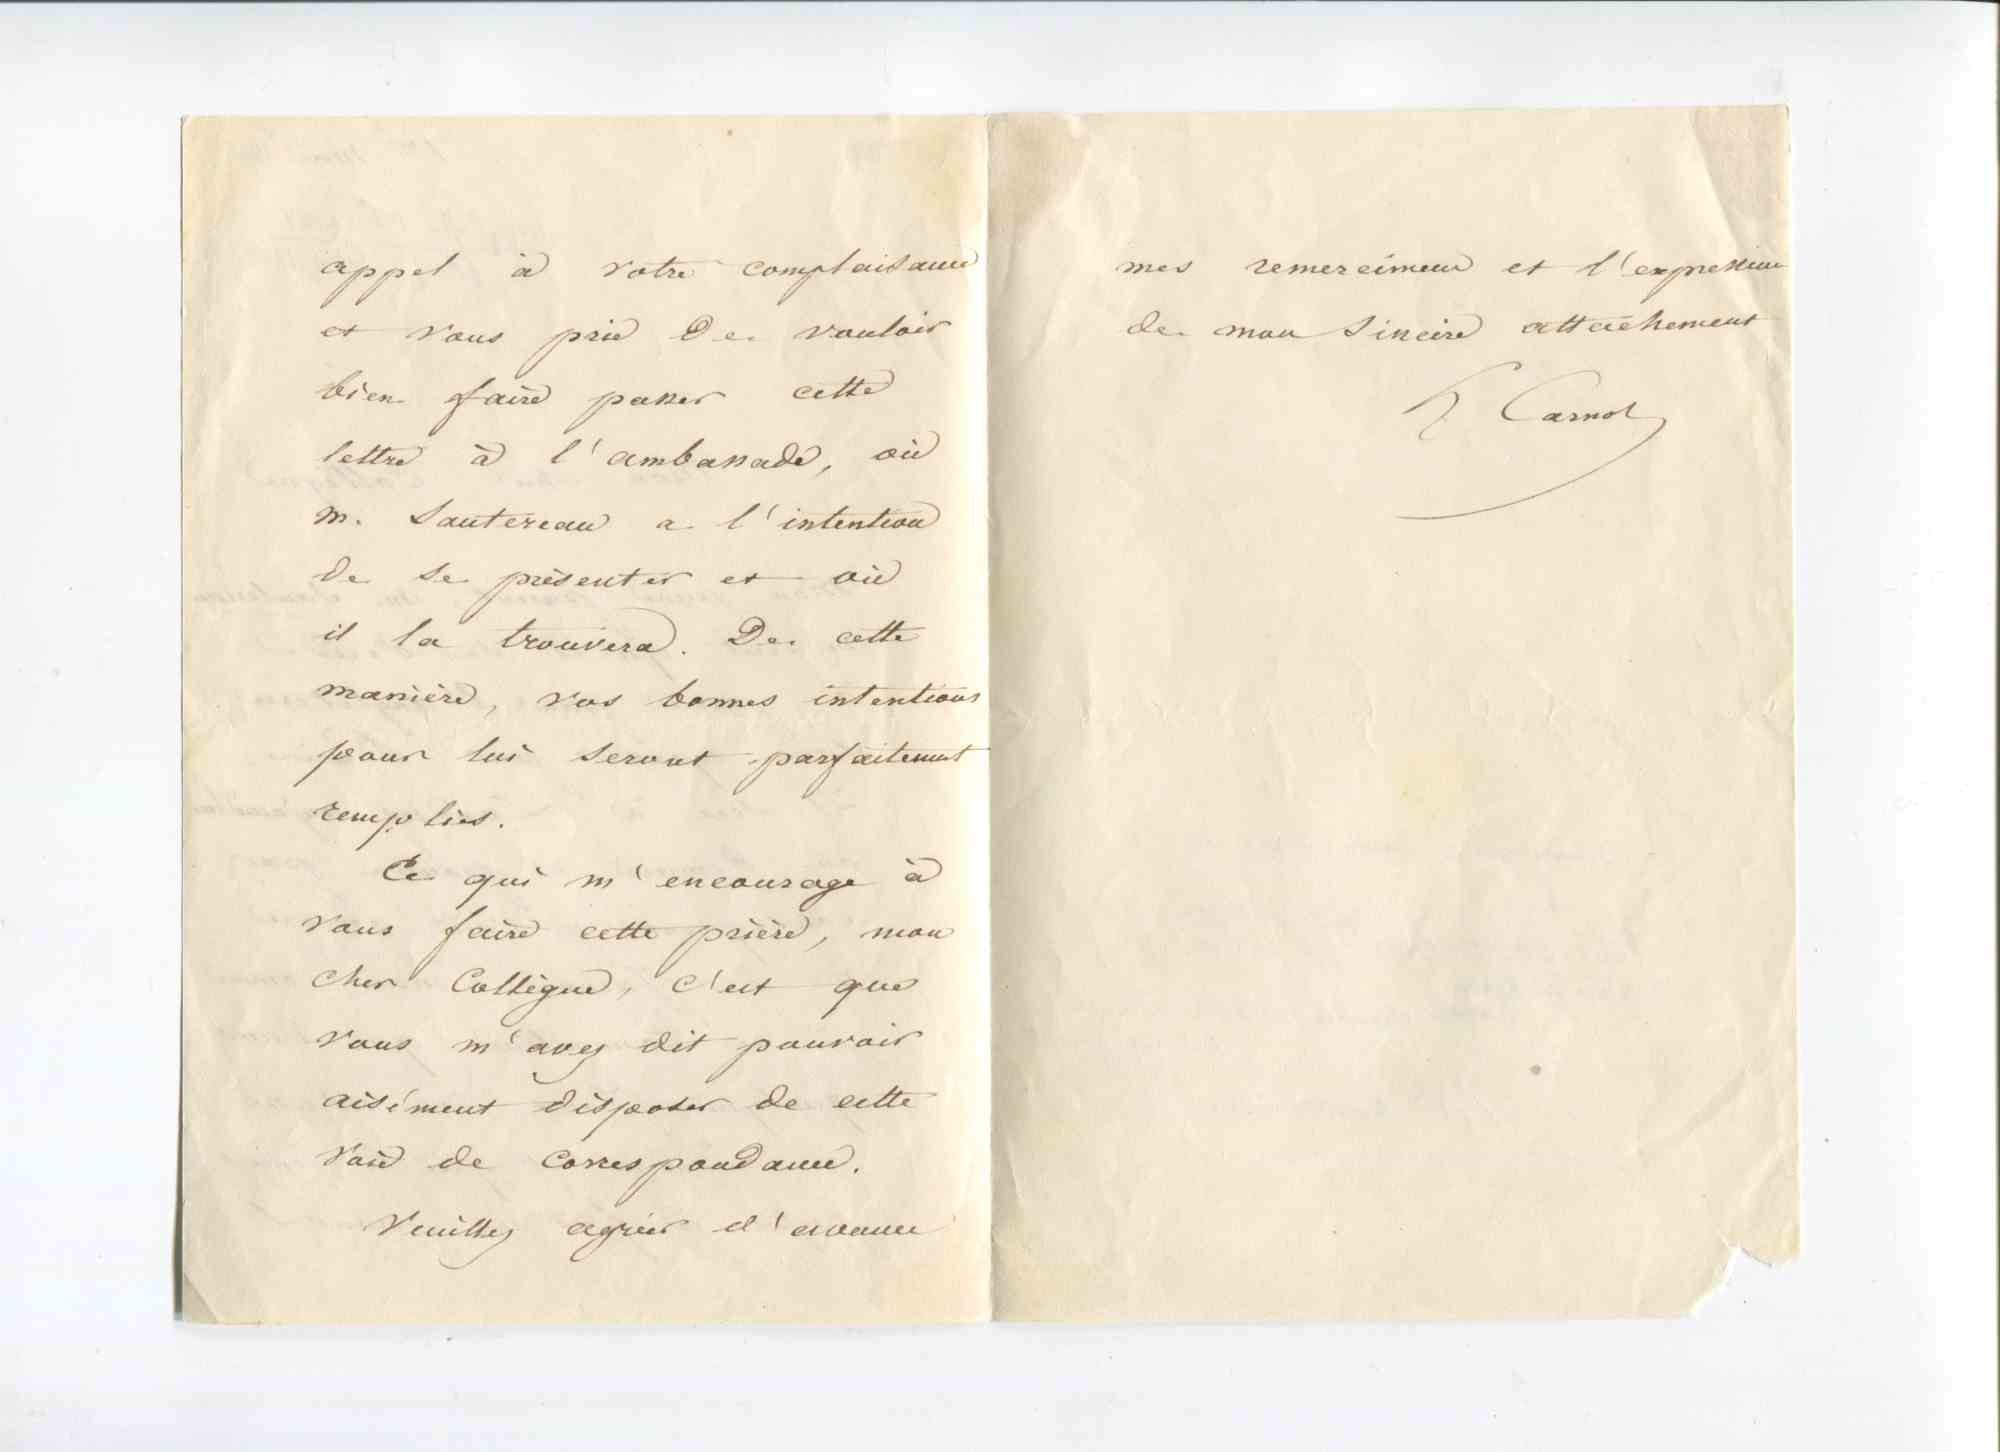 appel à votre complaisance
et vous prie de vouloir
bien faire passer cette
lettre à l'ambassade, où
M. Sautereau a l'intention
de se présenter et où
il la trouvera. De cette
manière, vos bonnes intentions
pour lui seront parfaitement
remplies.
Ce qui m'encourage à
vous faire cette prière, mon
cher Collègue, c'est que
vous m'avez dit pouvoir
aisément disposer de cette
voie de correspondance.
Veuillez agréer d'avance
mes remercimens et l'expression
de mon sincère attachement
H Carnot